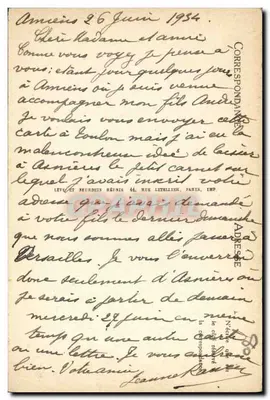 Amiens 26 Juin 1934
Chère Madame et amie
Comme vous voyez je pense à
vous: étant pour quelques jours
à Amiens où je suis venue
accompagner mon fils André
Je voulais vous envoyer cette
carte à Toulon mais j'ai eu la
malencontreuse idée de laisser
à Asnières le petit carnet sur
lequel j'avais inscrit votre
LEVY ET NEURDEIN RÉUNIS 44, RUE LETELLIER, PARIS, IMP.
adresse que j'avais demandé
à votre fils le dernier dimanche
que nous sommes allés passer à
Versailles. Je vous l'enverrai
donc seulement d'Asnières où
je serais à partir de demain
mercredi 27 juin en même
temps que une autre carte
ou une lettre. Je vous embrasse
bien. Votre amie
Jeanne
CORRESPONDANCE
ADRESSE